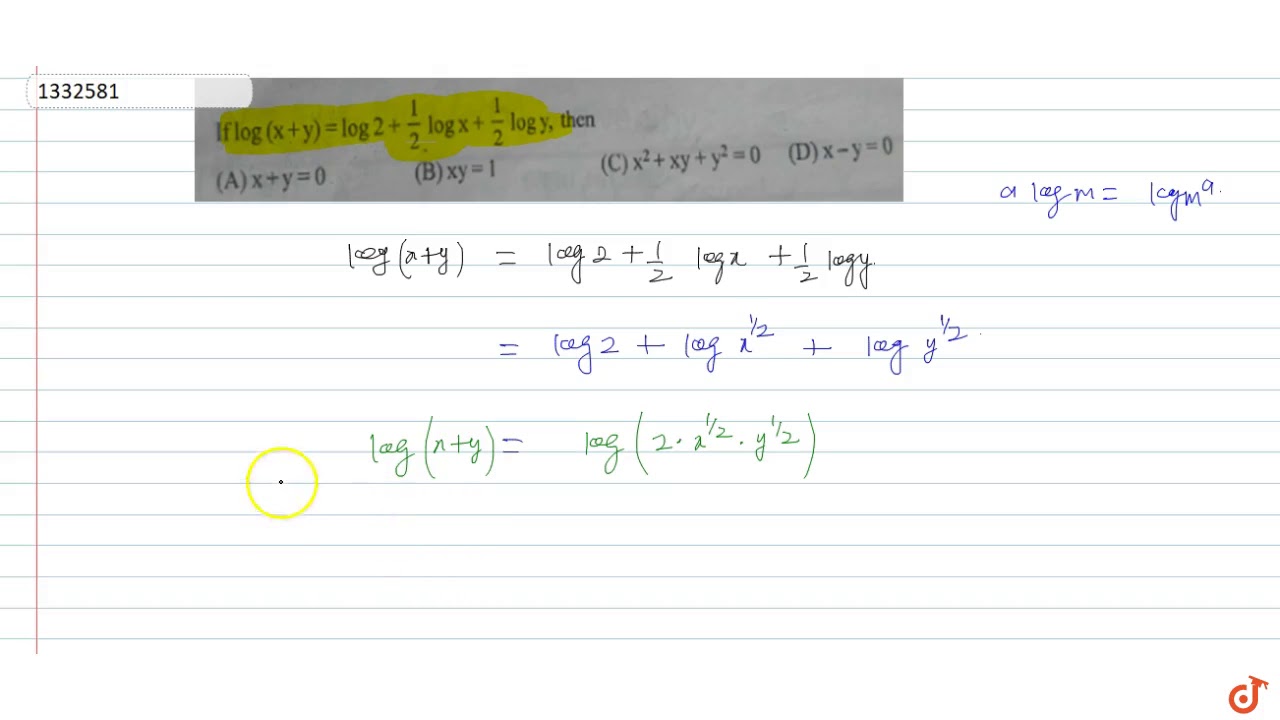 1332581
If log (x+y) = log 2 + 1/2 log x + 1/2 log y, then
(A) x + y = 0 (B) xy = 1 (C) x² + xy + y² = 0 (D) x − y = 0
a log m = log m^a.
log (x+y) = log 2 + 1/2 log x + 1/2 log y.
= log 2 + log x^1/2 + log y^1/2.
log (x+y) = log (2 · x^1/2 · y^1/2)